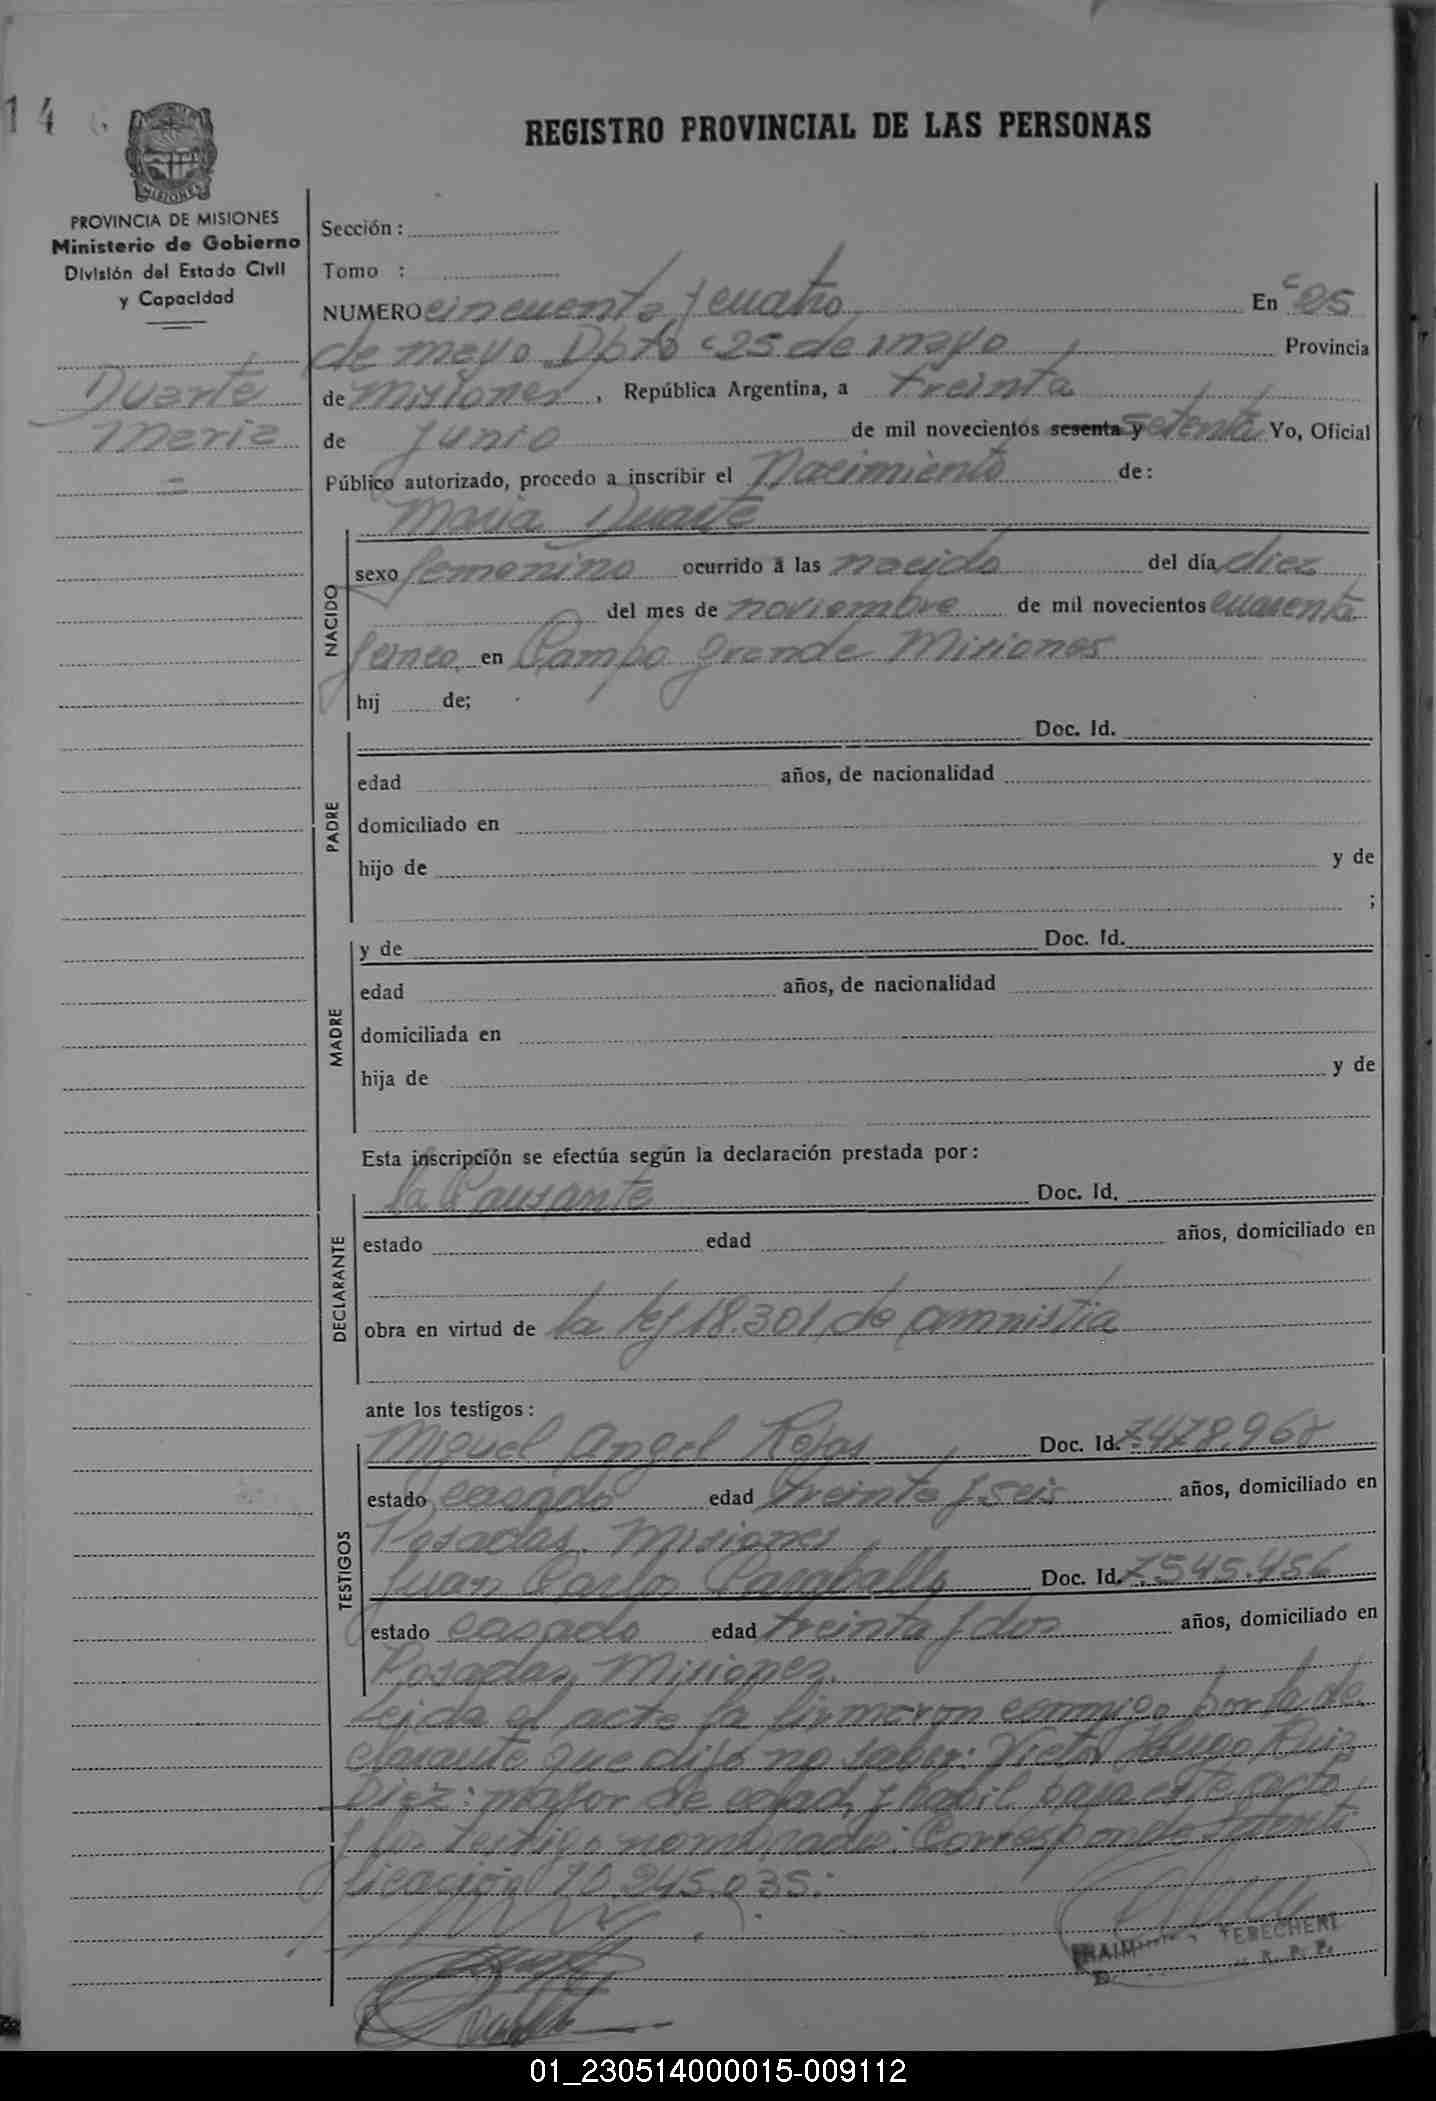 14
REGISTRO PROVINCIAL DE LAS PERSONAS
MISIONES
PROVINCIA DE MISIONES
Ministerio de Gobierno
División del Estado Civil
y Capacidad
Duarte
Maria
Sección :
Tomo :
NUMERO cincuenta y cuatro En "25
de mayo Dpto "25 de mayo Provincia
de Misiones, República Argentina, a treinta
de junio de mil novecientos sesenta y setenta Yo, Oficial
Público autorizado, procedo a inscribir el Nacimiento de:
Maria Duarte
NACIDO
sexo femenino ocurrido a las nacido del día diez
del mes de noviembre de mil novecientos cuarenta
y cinco en Campo grande Misiones
hij de;
PADRE
Doc. Id.
edad años, de nacionalidad
domiciliado en
hijo de y de
;
MADRE
y de Doc. Id.
edad años, de nacionalidad
domiciliada en
hija de y de
Esta inscripción se efectúa según la declaración prestada por:
DECLARANTE
la Causante Doc. Id.
estado edad años, domiciliado en
obra en virtud de la ley 18.301 de amnistia
ante los testigos:
TESTIGOS
Miguel Angel Rojas Doc. Id. 7.478.968
estado casado edad treinta y seis años, domiciliado en
Posadas Misiones
Juan Carlos Doc. Id. 7.545.456
estado casado edad treinta y dos años, domiciliado en
Posadas Misiones.
Leida el acta la firmaron conmigo por la de
clarante que dijo no saber: Victor Hugo Ruiz
Diaz: mayor de edad, y habil para este acto
y los testigos nombrados: Corresponde Identi
ficación 10.245.035:
TERECHEN
01_230514000015-009112